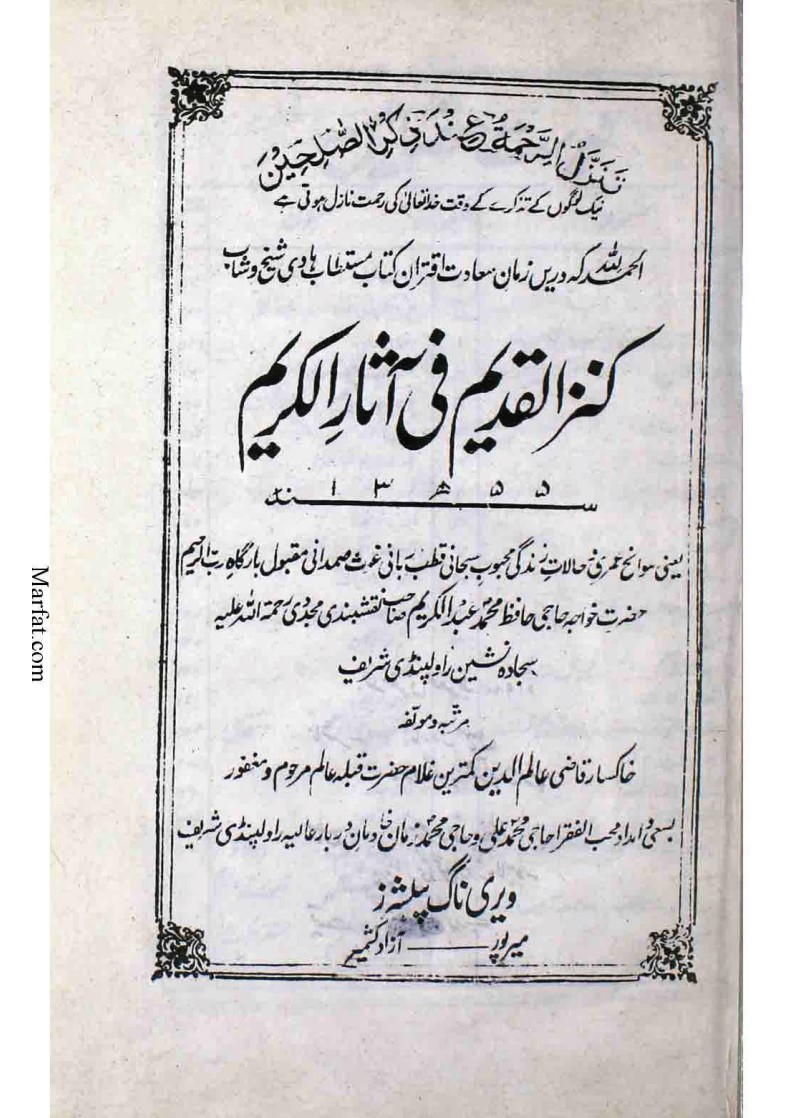 تَنَزَّلُ الرَّحْمَةُ عِنْدَ ذِكْرِ الصّٰلِحِیْنَ
نیک لوگوں کے تذکرے کے وقت خدا تعالیٰ کی رحمت نازل ہوتی ہے
الحمد للہ کہ دریں زمان سعادت اقتران کتاب مستطاب ہادی شیخ و شاب
کنز القدیم فی آثار الکریم
سنہ ۱۳۵۵ھ
یعنی سوانح عمری و حالات زندگی محبوب سبحانی قطب ربانی غوث صمدانی مقبول بارگاہِ رب الرحیم
حضرت خواجہ حاجی حافظ محمد عبد الکریم صاحب نقشبندی مجددی رحمۃ اللہ علیہ
سجادہ نشین راولپنڈی شریف
مرتبہ و مولفہ
خاکسار قاضی عالم الدین کمترین غلام حضرت قبلہ عالم مرحوم و مغفور
بسعی و امداد محب الفقرا حاجی محمد علی و حاجی محمد زمان خادمان دربار عالیہ راولپنڈی شریف
ویری ناگ پبلشرز
میرپور ——— آزاد کشمیر
Marfat.com